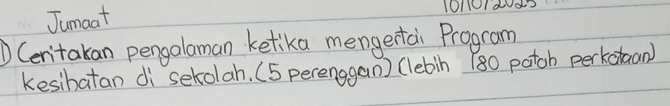 Jumaat 10/10/2025
1) Ceritakan pengalaman ketika mengertai Program
Kesihatan di sekolah. (5 perenggan) (lebih 180 patah perkataan)